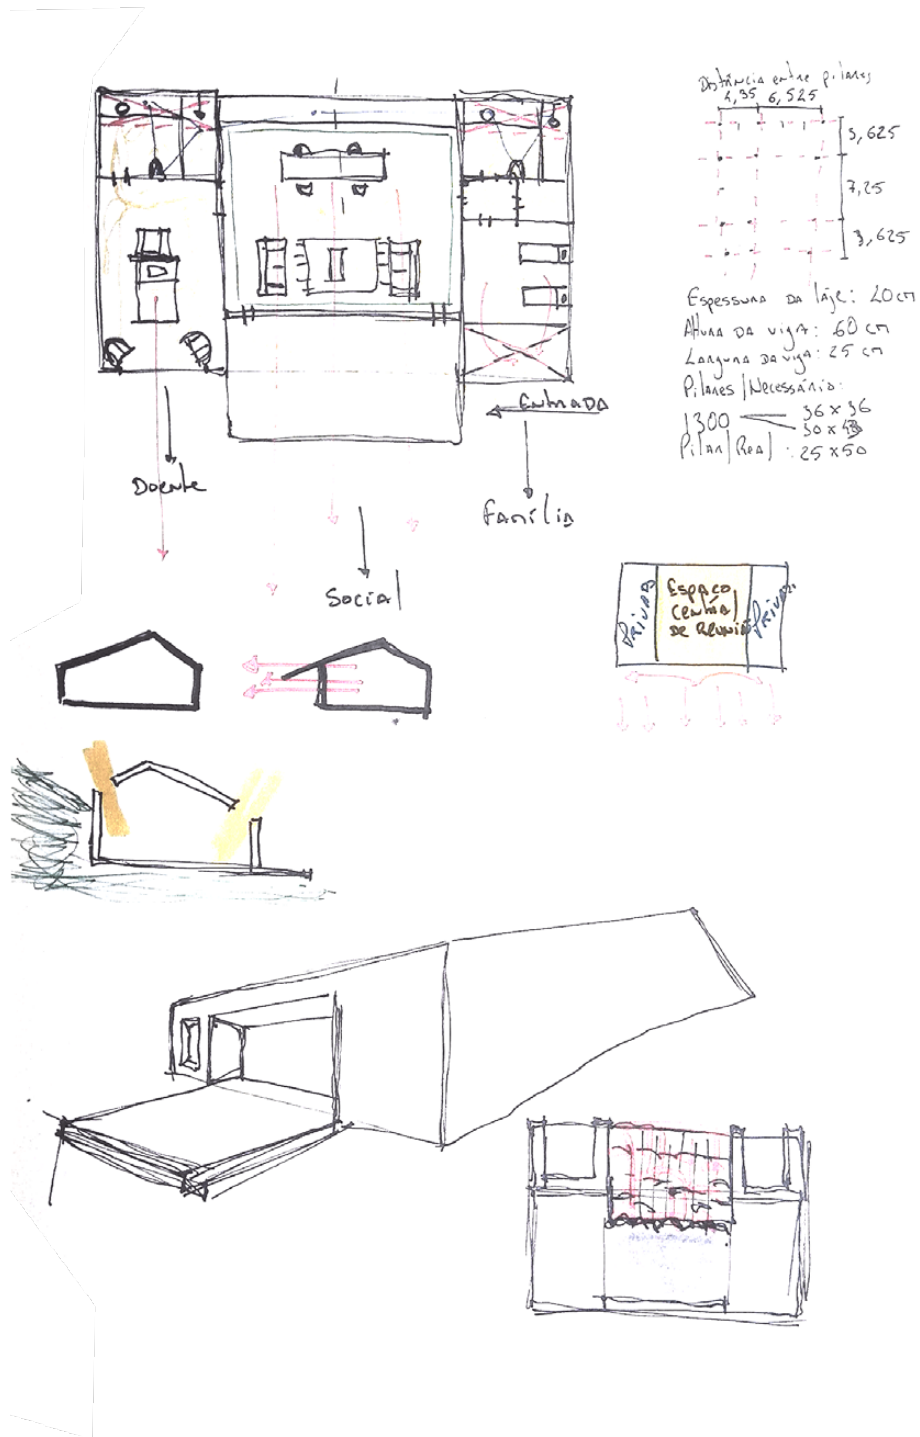 Distância entre pilares
4,35 6,525
3,625
7,25
3,625
Espessura da laje: 20cm
Altura da viga: 60 cm
Largura da viga: 25 cm
Pilares/Necessário:
1300
36 x 36
Pilar/Real: 25 x 50
Entrada
Doente
Família
Social
Privado
Espaço
Central
de Reunião
Privado